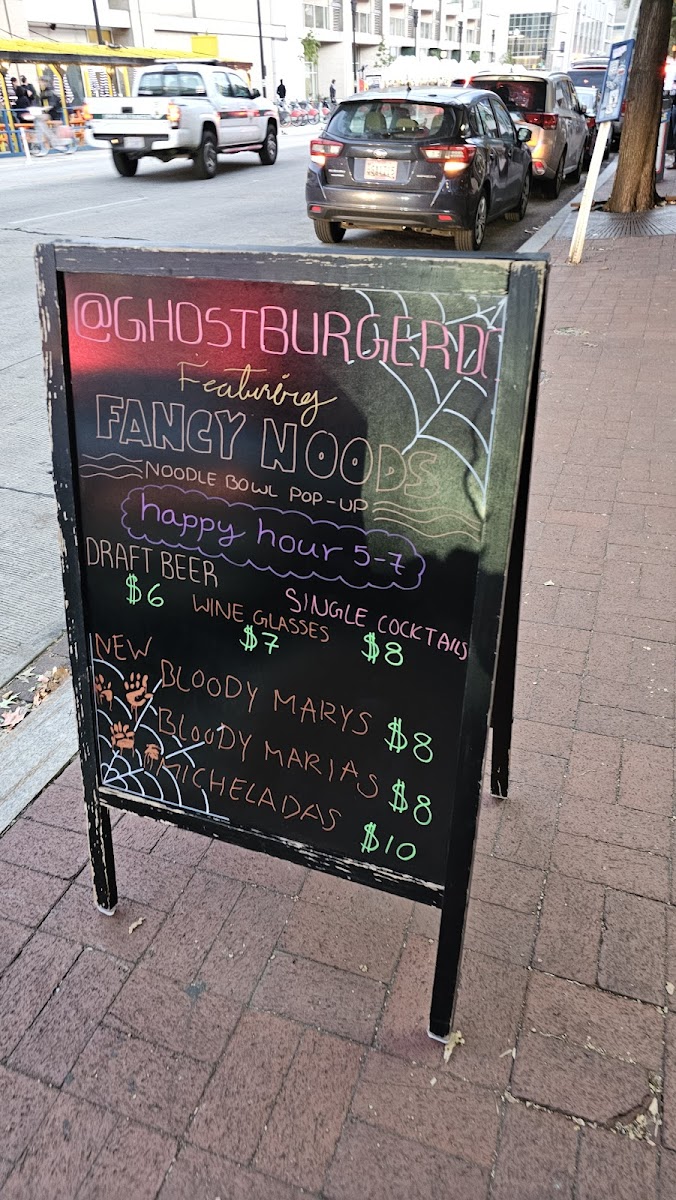 @GHOSTBURGERDC
Featuring
FANCY NOODS
NOODLE BOWL POP-UP
happy hour 5-7
DRAFT BEER
$6
WINE GLASSES
$7
SINGLE COCKTAILS
$8
NEW
BLOODY MARYS $8
BLOODY MARIAS $8
MICHELADAS $10